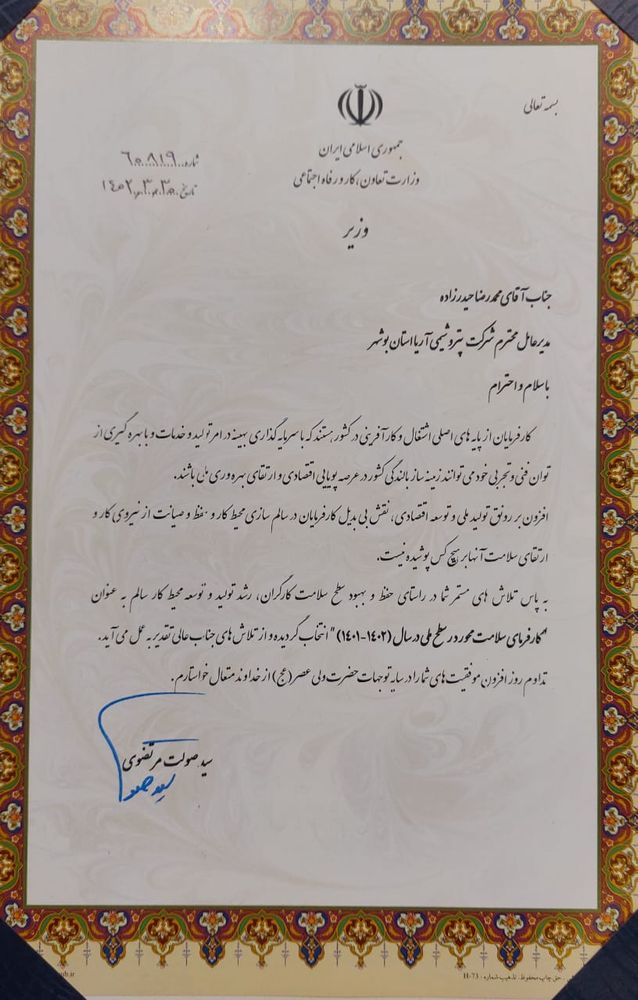 بسمه تعالی
جمهوری اسلامی ایران
وزارت تعاون، کار و رفاه اجتماعی
شماره ۶۰۸۱۹
تاریخ ۱۴۰۲.۳.۳۰
وزیر
جناب آقای محمدرضا حیدرزاده
مدیرعامل محترم شرکت پتروشیمی آریا استان بوشهر
با سلام و احترام
کارفرمایان از پایه های اصلی اشتغال و کارآفرینی در کشور هستند که با سرمایه گذاری بهینه در امر تولید و خدمات و با بهره گیری از
توان فنی و تجربی خود می توانند زمینه ساز بالندگی کشور در عرصه پویایی اقتصادی و ارتقای بهره وری ملی باشند.
افزون بر رونق تولید ملی و توسعه اقتصادی، نقش بی بدیل کارفرمایان در سالم سازی محیط کار و حفظ و صیانت از نیروی کار و
ارتقای سلامت آنها بر هیچ کس پوشیده نیست.
به پاس تلاش های مستمر شما در راستای حفظ و بهبود سطح سلامت کارگران، رشد تولید و توسعه محیط کار سالم به عنوان
"کارفرمای سلامت محور در سطح ملی در سال (۱۴۰۲-۱۴۰۱)" انتخاب گردیده و از تلاش های جناب عالی تقدیر به عمل می آید.
تداوم روز افزون موفقیت های شما را در سایه توجهات حضرت ولی عصر (عج) از خداوند متعال خواستارم.
سید صولت مرتضوی
حق چاپ محفوظ. تذهیب شماره: H-73